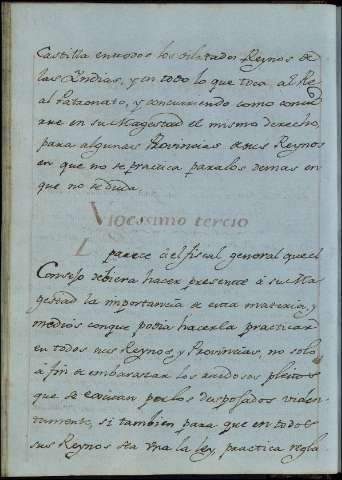 Castilla en todos los dilatados Reynos de
las Yndias, y en todo lo que toca al Re
al Patronato, y concurriendo como concu
rre en su Magestad el mismo derecho,
para algunas Provincias de sus Reynos
en que no se practica para los demas en
que no se duda.
Vigessimo tercio
Le parece â el fiscal general que el
Consejo debiera hacer presente â su Ma
gestad la importancia de esta materia, y
medios conque podia hacerla practicar
en todos sus Reynos y Provincias, no solo
â fin de embarazar los ruidosos pleitos
que se causan por los despojados violen
tamente, si tambien para que en todos
sus Reynos sea vna la ley, practica regla